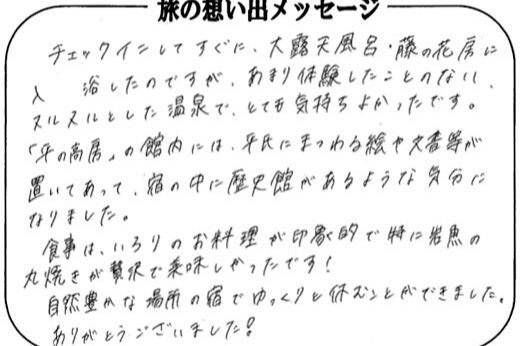 旅の想い出メッセージ
チェックインしてすぐに、大露天風呂・藤の花房に
入 浴したのですが、あまり体験したことのない、
ヌルヌルとした温泉で、とても気持ちよかったです。
「平の高房」の館内には、平氏にまつわる絵や文書等が
置いてあって、宿の中に歴史館があるような気分に
なりました。
食事は、いろりのお料理が印象的で特に岩魚の
丸焼きが贅沢で美味しかったです!
自然豊かな場所の宿でゆっくりと休むことができました。
ありがとうございました!